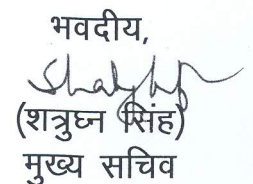 भवदीय,
(शत्रुघ्न सिंह)
मुख्य सचिव